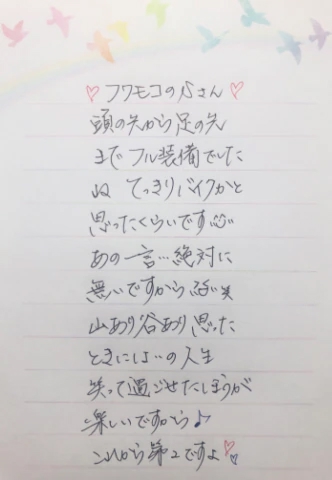 ♡フワモコのらさん♡
頭の先から足の先
までフル装備でした
ね てっきりバイクかと
思ったくらいです☺
あの一言…絶対に
無いですから 笑
山あり谷あり思った
ときに の人生
笑って過ごせたほうが
楽しいですから♪
これから第2ですよ♡